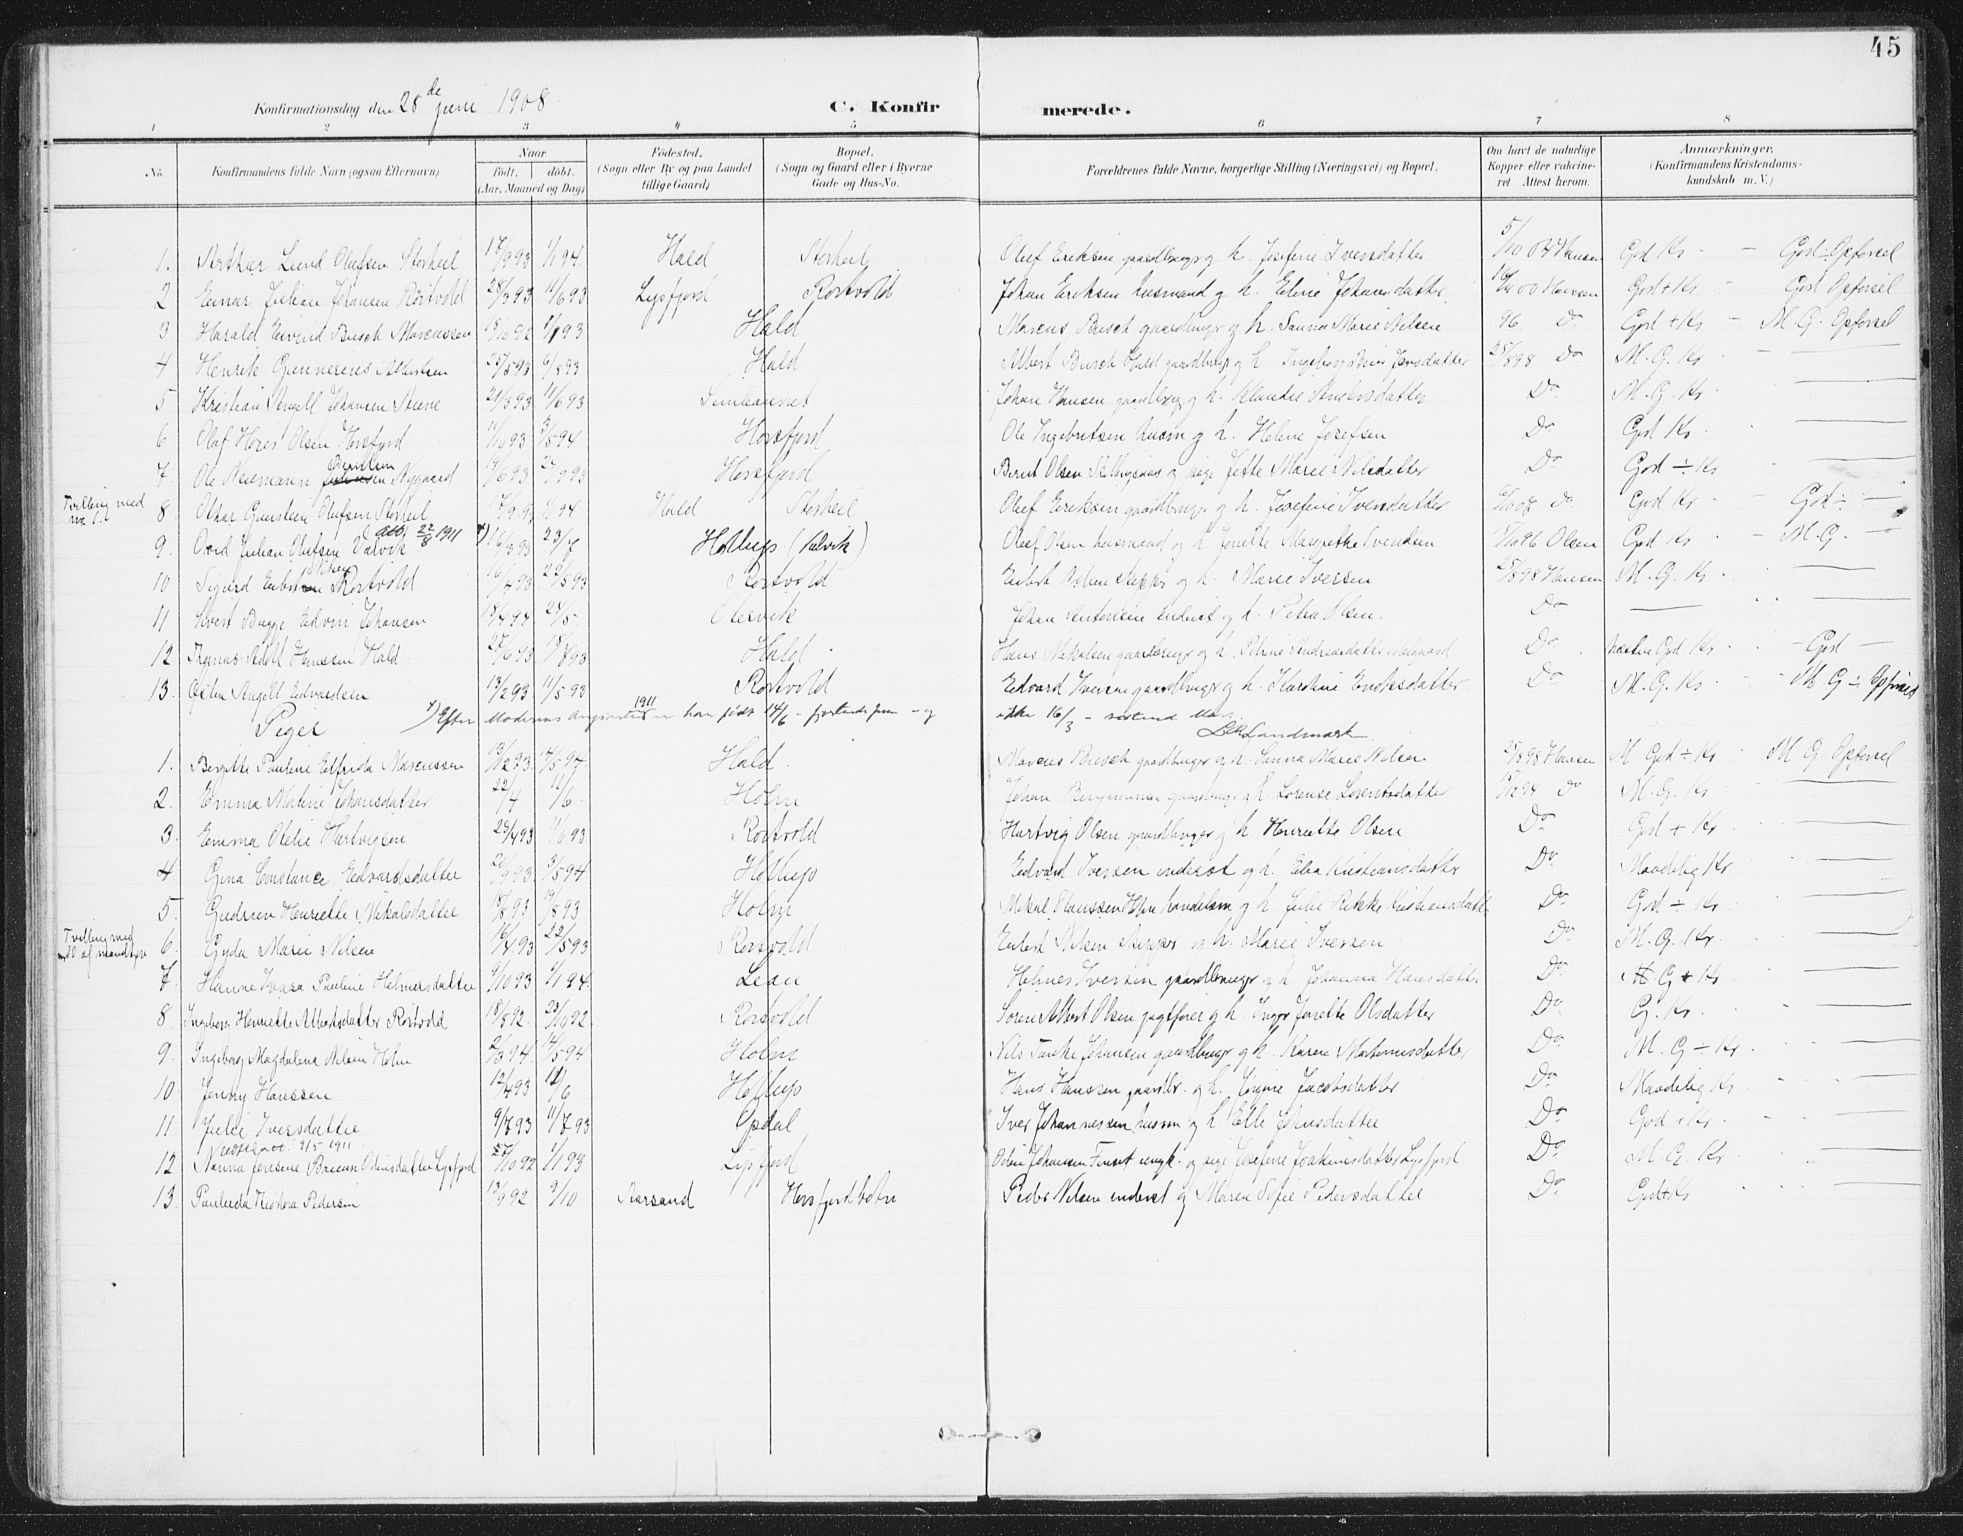 45
Konfirmationsdag den 28de juni 1908 C. Konfirmerede.
1 2 3 4 5 6 7 8
No. Konfirmandens fulde Navn (ogsaa Efternavn) Naar født. døbt. (Aar, Maaned og Dag) Fødested. (Sogn eller By og paa Landet tillige Gaard) Bopæl. (Sogn og Gaard eller i Byerne Gade og Hus-No. Forældrenes fulde Navne, borgerlige Stilling (Næringsvei) og Bopæl. Om havt de naturlige Kopper eller vakcineret Attest herom. Anmærkninger. (Konfirmandens Kristendomskundskab m. V.)
1. Arthur Lund Olufsen Storheil 17/9 93 1/1 94 Hald Storheil Oluf Eriksen gaardbruger og h. Josefine Iversdatter 5/10 07 Hansen God Kr - God ÷ Opførsel
2 Einar Julian Johansen Rörtvold 28/3 93 11/6 93 Lysfjord Rörtvold Johan Eriksen husmand og h. Eline Johansdatter 00 Hansen God + Kr - God Opførsel
3 Harald Eivind Busch Marcussen 92 93 Hald Marcus Busch gaardbruger og h. Sanna Marie Nilsen 96 Do God + Kr - M. G. Opførsel
4 Henrik Gunnerius Albertsen 25/5 93 6/8 93 Hald Albert Busch Hald gaardbruger og h. Ingeborg Jensdatter 25/8 98 Do M. G. Kr
5 Kristian Angell Johansen 21/3 93 11/6 93 Johan Hansen gaardbruger og h. Do M. G. Kr.
6 Olaf Olsen Horsfjord 11/10 93 3/5 94 Horsfjord Ole Ingebretsen husm og h. Helene Josefsen Do God Kr
7 Ole Neumann Berntsen Nygaard 6 93 27/9 93 Horsfjord Bernt Olsen og pige Jette Marie Nilsdatter Do God ÷ Kr
Tvilling med no 1. 8 Othar Gunsteen Olufsen Storheil 17/9 93 1/1 94 Hald Storheil Oluf Eriksen gaardbruger og h. Josefine Iversdatter 07 Do God Kr - God ÷ -
9. Ovid Julian Olufsen Valvik att. 22/8 1911 *) 16/3 93 23/7 Hollup (Valvik) Oluf Olsen husmand og h. Jonette Margrethe Svendsen 96 Olsen God Kr - M. G. -
10 Sigurd Nilsen Rörtvold 16/4 93 22/5 93 Rortvold Enbert Nilsen skipper og h. Marie Iversen 25/8 98 Hansen M. G. Kr
11 Sivert Bugge Edvin Johansen 18/4 94 27/5 Olesvik Johan Antonsen inderst og h. Petra Olsen. Do
12 Adolf Hanssen Hald 27/6 93 93 Hald Hans Nikolsen gaardbruger og h. Petrine Andreasdatter Do næsten God Kr - God -
13. Osten Angell Edvardsen 13/2 93 11/5 93 Rortvold Edvard Iversen gaardbruger og h. Karoline Eriksdatter Do M. G. Kr - M G ÷ Opførsel
*) Efter Moderens angivelse 1911 er han født 14/6 - fjortende juni - og ikke 16/3 - sextend Mars. Landmark.
Piger
1. Bergitte Pauline Elfrida Marcussen 13/12 93 14/5 94 Hald. Marcus Busch gaardbruger og h. Sanna Marie Nilsen 25/8 98 Hansen M. God ÷ Kr - M. G. Opførsel
2. Emma Maline Johansdatter 22/4 11/6 Holm Johan Benjaminsen gaardbruger og h. Lorense Lorentsdatter 94 Do M. G. Kr
3. Emma Oletie Hartvigsen 25/4 93 11/6 93 Rortvold Hartvig Olsen gaardbruger og h. Henriette Olsen Do God + Kr
4. Gina Constance Edvardsdatter 26/9 93 3/5 94 Hollup Edvard Iversen inderst og h. Elea Kristiansdatter Do Maadelig Kr
5. Gudrun Henriette Nikolsdatter 18/8 93 93 Holm Nikol Claussen Holm handelsm og h. Julie Rikke Kristiansdatter Do God ÷ Kr
Tvilling med no 10 af mandkjøn 6. Gyda Marie Nilsen 16/4 93 22/5 93 Rortvold Enbert Nilsen skipper og h. Marie Iversen Do M. G. Kr.
7. Hanne Ivara Pauline Helmersdatter 9/10 93 1/1 94 Leau Helmer Iversen gaardbruger og h. Johanna Hansdatter Do M G + Kr
8 Ingeborg Henriette Albertsdatter Rörtvold 18/8 92. 23/10 92 Rortvold Soren Albert Olsen jagtfører og h. Inger Jonette Olsdatter Do G. Kr.
9. Ingeborg Magdalena Nilsen Holm 2/3 94 14/5 94 Holm Nils Tanke Johansen gaardbruger og h. Karen Martinusdatter Do M. G ÷ Kr
10 Jenny Hanssen 12/4 93 11/6 Hollup Hans Hanssen gaardbr. og h. Jacobsdatter Do. Maadelig Kr
11 Julie Iversdatter 9/7 93 11/7 93 Opdal Iver Johannessen husm og h Elle Johnsdatter Do God + Kr
9/5 1911
12 Nanna Jensine Odinsdatter Lysfjord 27/10 92 1/1 93 Lysfjord Odin Johansen Finset ungk. og pige Josefine Joakimsdatter Lysfjord Do M. G. Kr
13. Paulida Teodora Pedersen 13/9 92 9/10 Aarsand Horsfjordbotn Peder Nilsen inderst og Maren Sofie Pedersdatter Do God + Kr